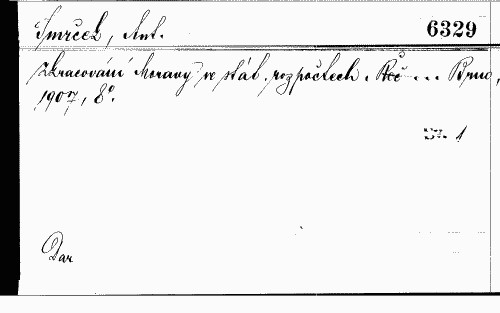 Smrček, Ant. 6329
Zkracování Moravy ve stát. rozpočtech. Řeč ... Brno,
1907, 8°.
Sv. 1
Dar